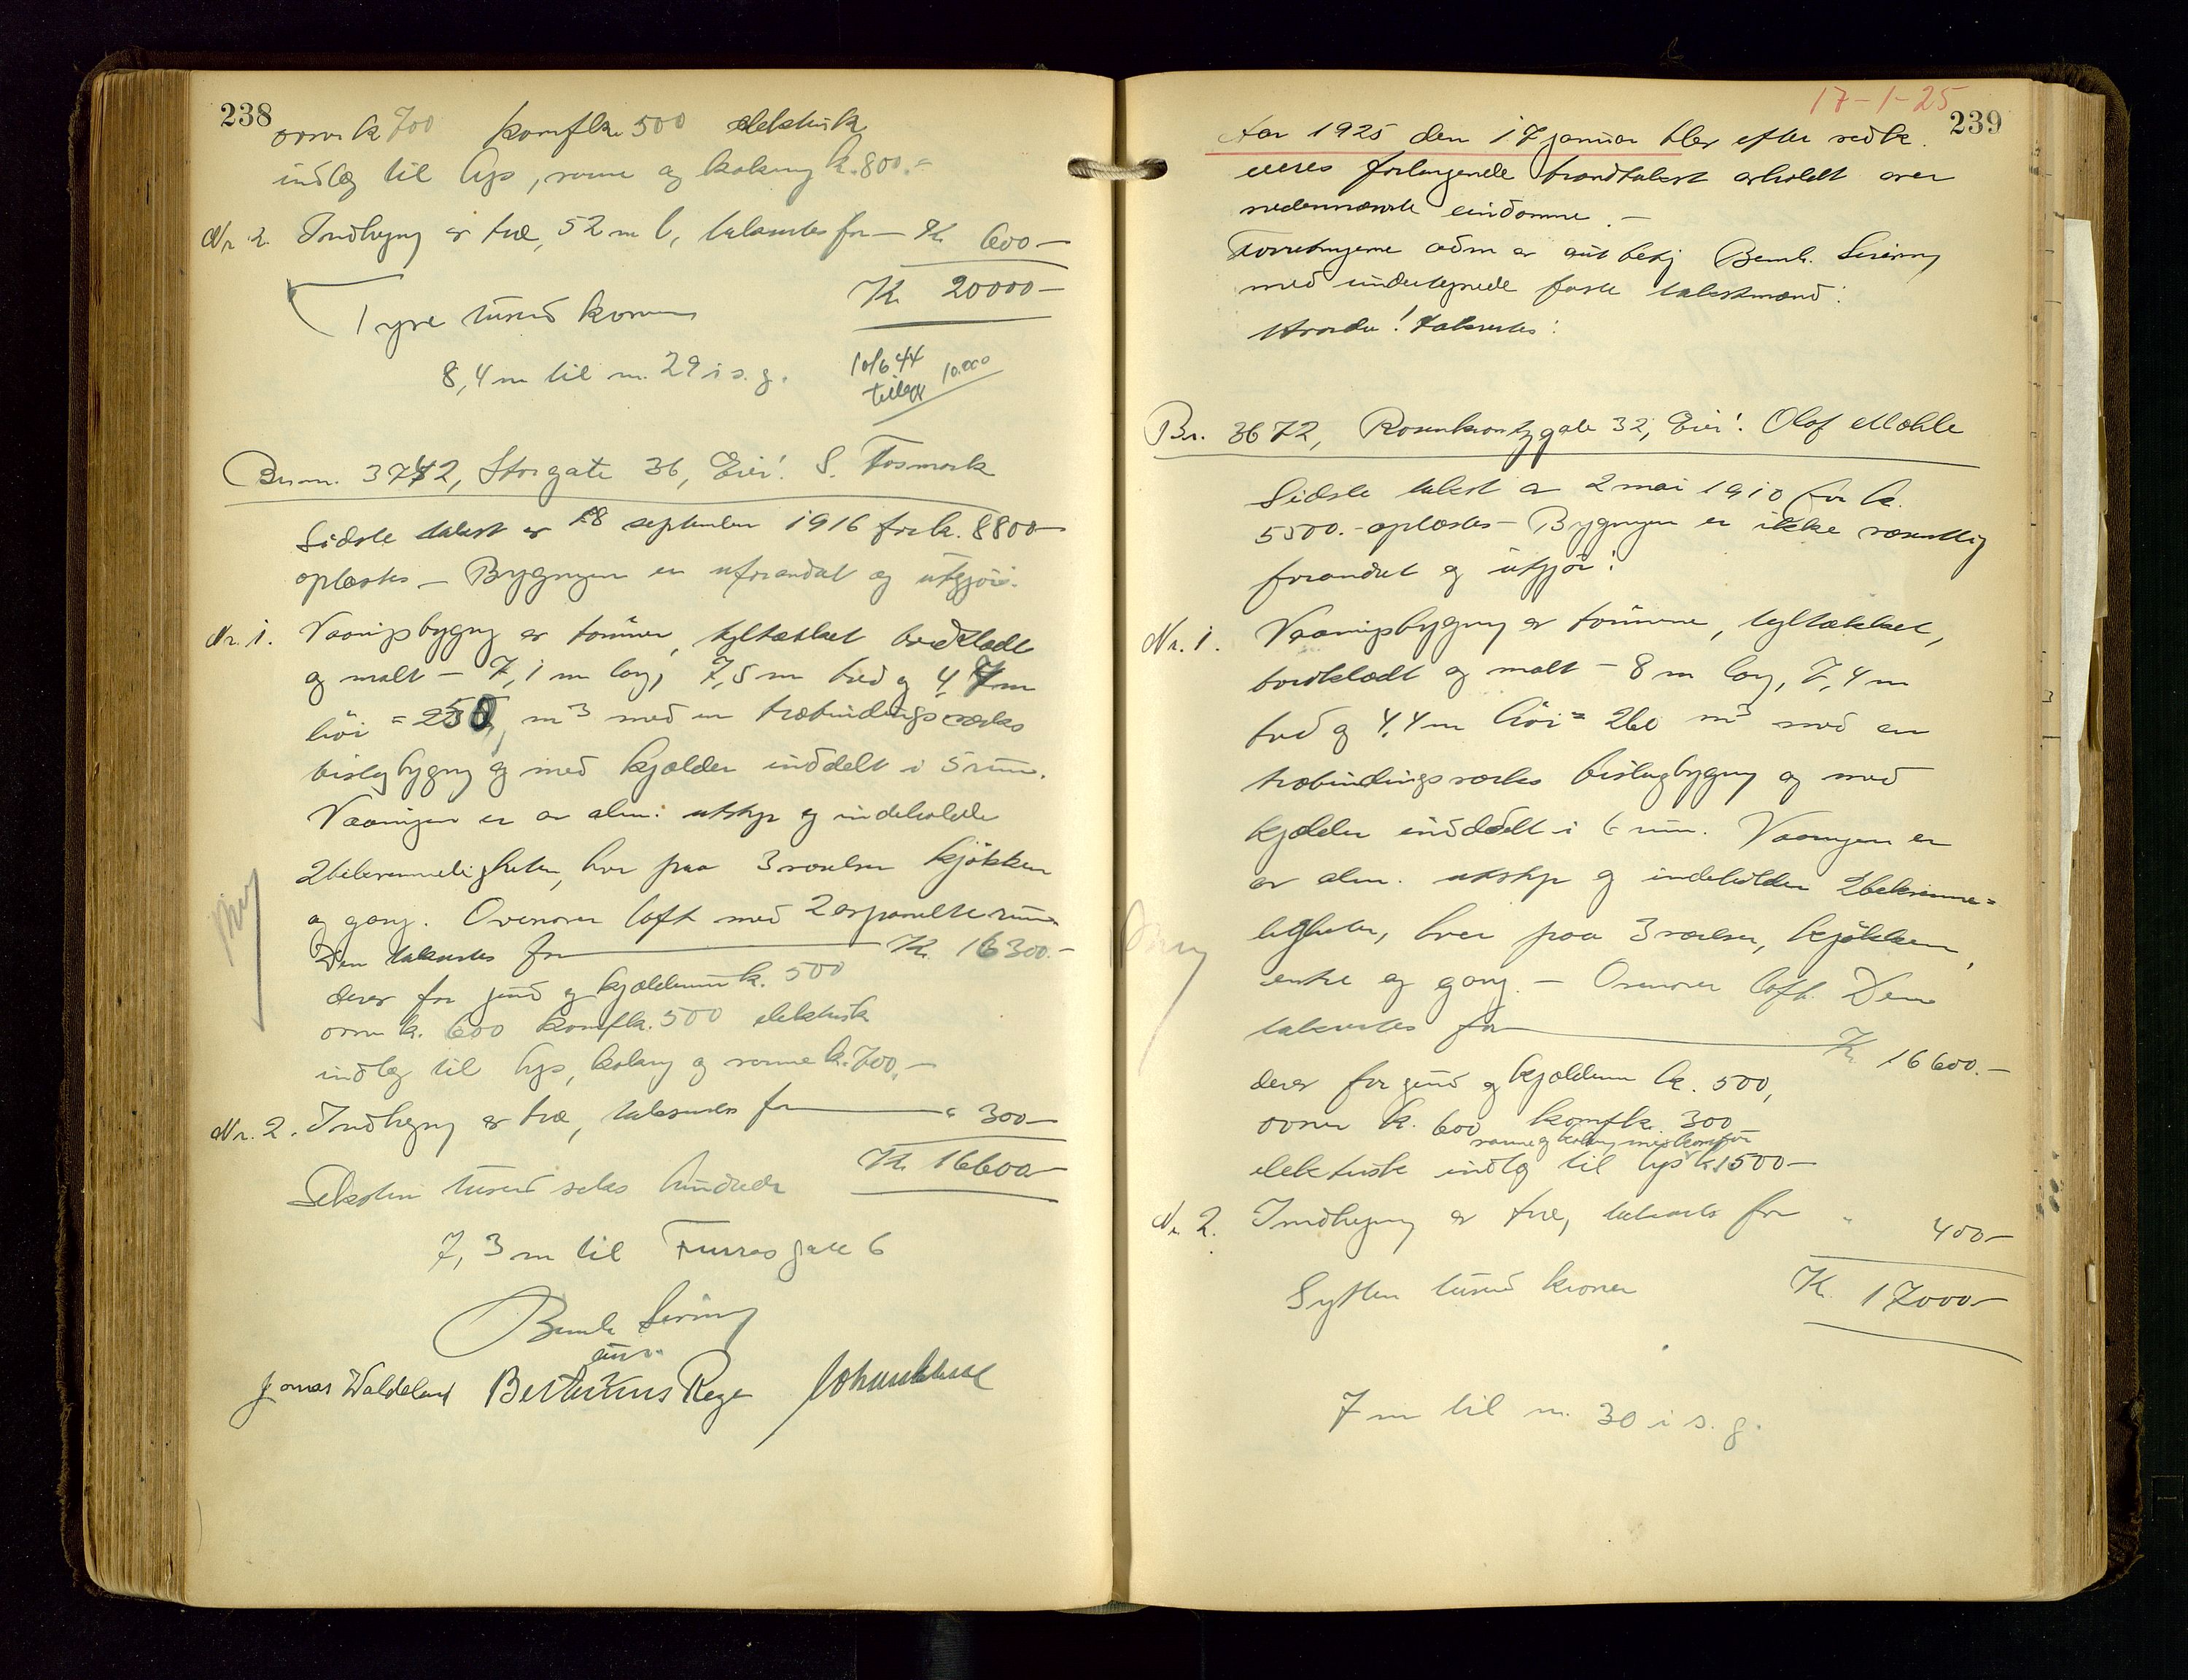 238
ovne k 700 komfk. 500 elektrisk
indlæg til lys, varme og kokning k. 800.-
Nr. 2. Indhegning av træ, 52 m l, takseres for - Kr. 600 -
Kr. 20000 -
Tyve tusend kroner
8,4 m til nr. 29 i s. g.
10/6 44
tillegg 10.000
Br.nr. 3742, Storgate 36, Eier: S. Fosmark
Sidste takst av 28 september 1916 for k. 8800 -
oplæstes - Bygningen er uforandret og utgjør:
Nr. 1. Vaaningsbygning av tømmer, tegltækket bordklædt
og malt - 7,1 m lang, 7,5 m bred og 4,7 m
høi = 250 m3 med en træbindingsverks
bislagbygning og med kjælder inddelt i 5 rum.
Vaaningen er av alm. utstyr og indeholder
2 bekvemmeligheter, hver paa 3 værelser kjøkken
og gang. Ovenover loft med 2 avpanelte rum
Den takseres for Kr. 16300.-
derav for grund og kjælderrum k. 500
ovne k. 600 komfk. 500 elektrisk
indlæg til lys, kokning og varme k. 700.-
Nr. 2. Indhegning av træ, takseres for " 300 -
Kr. 16600 -
Seksten tusend seks hundrede
7,3 m til Furras gate 6
Bernh. Sirevng
aut.
Jonas Waldeland Bertinius Rege
17-1-25
239
Aar 1925 den 17 januar blev efter vedk.
eieres forlangende brandtakst avholdt over
nedennævnte eiendomme. -
Forretningerne adm. av aut. besig. Bernh. Sirevng
med undertegnede faste takstmænd:
Hvorda! Takseres:
Br. 3672, Rosenkrantzgate 32, Eier: Olaf Mæhle
Sidste takst av 2 mai 1910 for k.
5500.- oplæstes - Bygningen er ikke væsentlig
forandret og utgjør:
Nr. 1. Vaaningsbygning av tømmer, tegltækket,
bordklædt og malt - 8 m lang, 7,4 m
bred og 4,4 m høi = 260 m3 med en
træbindingsverks bislagbygning og med
kjælder inddelt i 6 rum. Vaaningen er
av alm. utstyr og indeholder 2 bekvemme=
ligheter, hver paa 3 værelser, kjøkken,
entre og gang. - Ovenover loft. Den
takseres for Kr. 16600.-
derav for grund og kjælderrum k. 500,
ovner k. 600 komfk. 300
varme og kokning med komfür
elektrisk indlæg til lys k. 1500 -
Nr. 2. Indhegning av træ, takseres for " 400 -
Sytten tusend kroner Kr. 17000 -
7 m til nr. 30 i s. g.